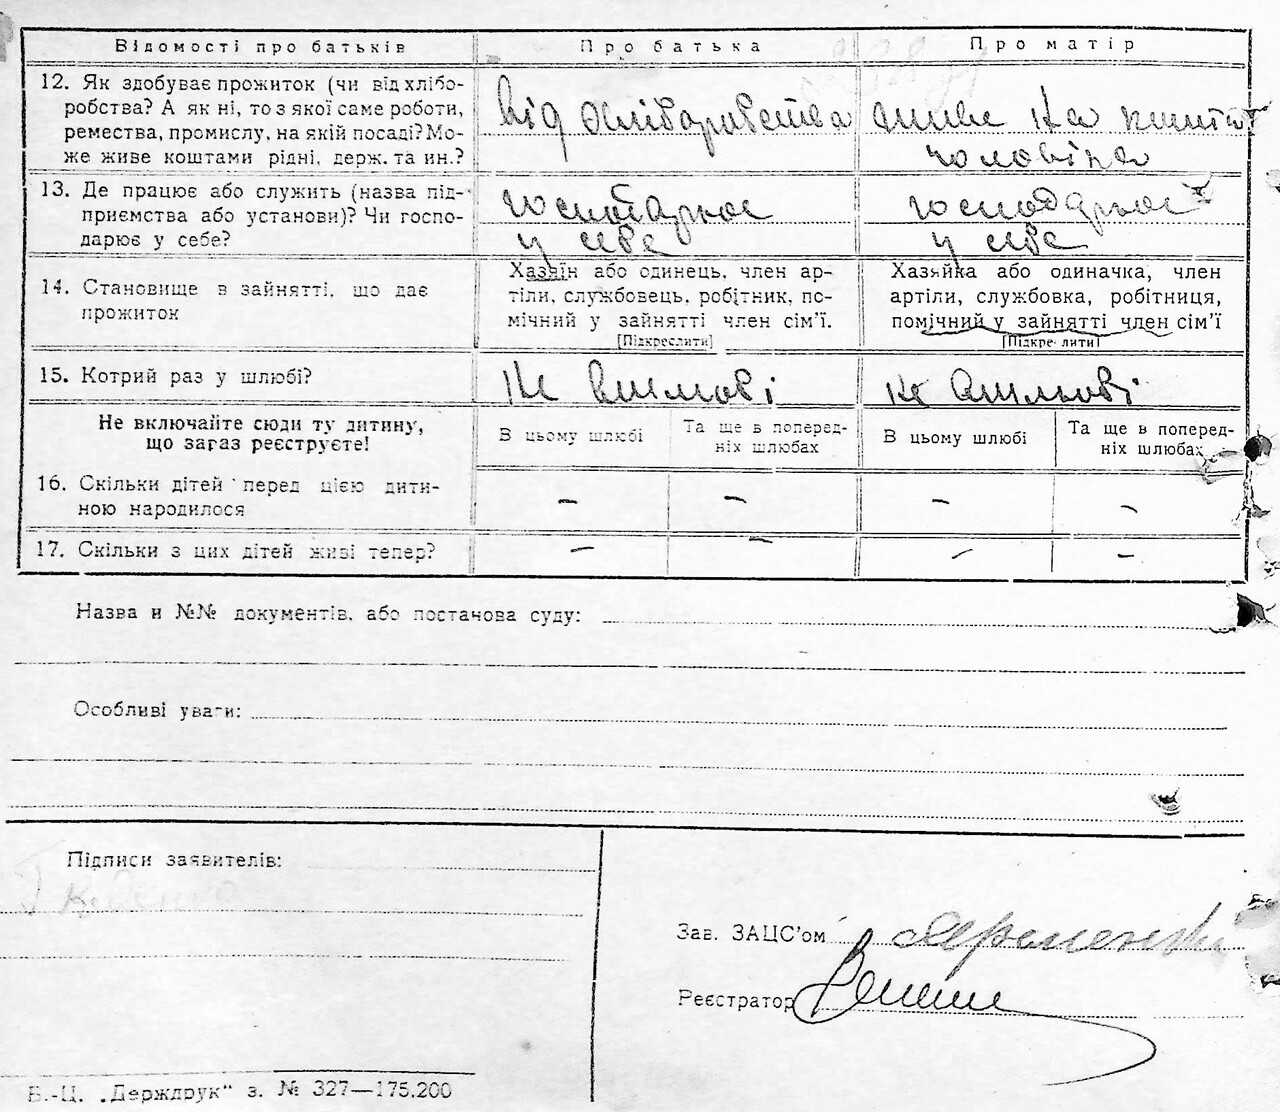 Відомості про батьків
Про батька
Про матір
12. Як здобуває прожиток (чи від хлібо-
робства? А як ні, то з якої саме роботи,
ремества, промислу, на якій посаді? Мо-
же живе коштами рідні, держ. та ин.?
від хліборобства
живе на кошти
чоловіка
13. Де працює або служить (назва під-
приємства або установи)? Чи госпо-
дарює у себе?
господарює
у себе
господарює
у себе
14. Становище в зайнятті, що дає
прожиток
Хазяїн або одинець, член ар-
тіли, службовець, робітник, по-
мічний у зайнятті член сім'ї.
[Підкреслити]
Хазяйка або одиначка, член
артіли, службовка, робітниця,
помічний у зайнятті член сім'ї
[Підкреслити]
15. Котрий раз у шлюбі?
Не включайте сюди ту дитину,
що зараз реєструєте!
В цьому шлюбі
Та ще в поперед-
ніх шлюбах
В цьому шлюбі
Та ще в поперед-
ніх шлюбах
16. Скільки дітей перед цією дити-
ною народилося
– – – –
17. Скільки з цих дітей живі тепер?
– – – –
Назва и №№ документів, або постанова суду:
Особливі уваги:
Підписи заявителів:
Зав. ЗАЦС'ом
Реєстратор
Б.-Ц. „Держдрук" з. № 327—175.200